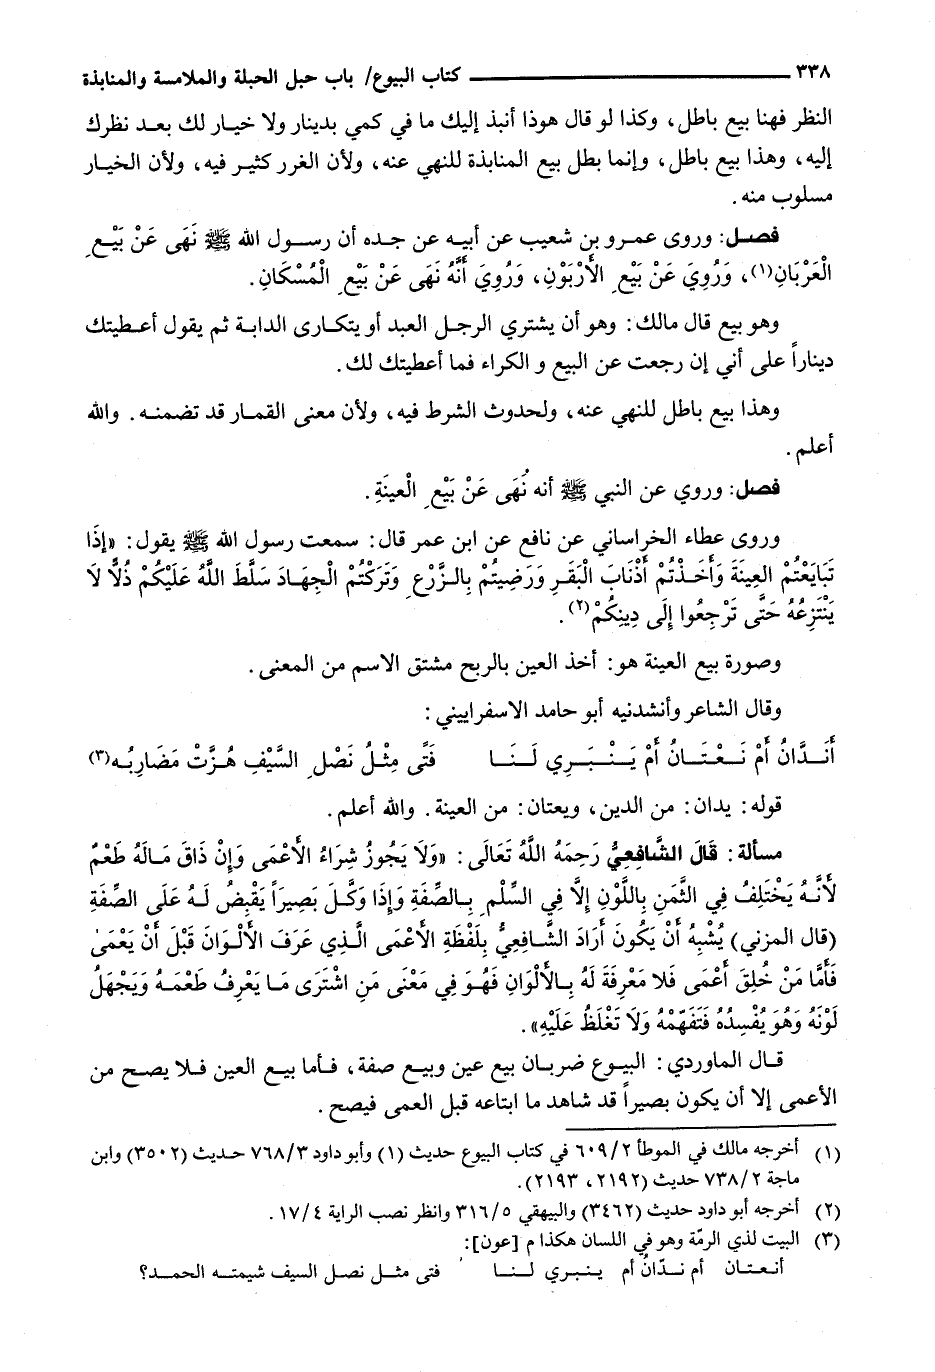 ٣٣٨ ــــــــــــــــ كتاب البيوع/ باب حبل الحبلة والملامسة والمنابذة
النظر فهنا بيع باطل، وكذا لو قال هوذا أنبذ إليك ما في كمي بدينار ولا خيار لك بعد نظرك
إليه، وهذا بيع باطل، وإنما بطل بيع المنابذة للنهي عنه، ولأن الغرر كثير فيه، ولأن الخيار
مسلوب منه.
فصل: وروى عمرو بن شعيب عن أبيه عن جده أن رسول الله ﷺ نَهَى عَنْ بَيْعِ
الْعَرْبَانِ(١)، وَرُوِيَ عَنْ بَيْعِ الأَرْبَوْنِ، وَرُوِيَ أَنَّهُ نَهَى عَنْ بَيْعِ الْمُسْكَانِ.
وهو بيع قال مالك: وهو أن يشتري الرجل العبد أو يتكارى الدابة ثم يقول أعطيتك
ديناراً على أني إن رجعت عن البيع و الكراء فما أعطيتك لك.
وهذا بيع باطل للنهي عنه، ولحدوث الشرط فيه، ولأن معنى القمار قد تضمنه. والله
أعلم.
فصل: وروي عن النبي ﷺ أنه نُهَى عَنْ بَيْعِ الْعينَةِ.
وروى عطاء الخراساني عن نافع عن ابن عمر قال: سمعت رسول الله ﷺ يقول: «إذَا
تَبَايَعْتُمْ العِينَةَ وَأَخَذْتُمْ أَذْنَابَ الْبَقَرِ وَرَضِيتُمْ بِالزَّرْعِ وَتَرَكْتُمْ الْجِهَادَ سَلَّطَ اللَّهُ عَلَيْكُمْ ذُلًّا لَا
يَنْتَزِعُهُ حَتَّى تَرْجِعُوا إِلَى دِينِكُمْ(٢).
وصورة بيع العينة هو: أخذ العين بالربح مشتق الاسم من المعنى.
وقال الشاعر وأنشدنيه أبو حامد الاسفراييني:
أَنَدَّانُ أَمْ نَعْتَانُ أَمْ يَنْبَرِي لَنَا فَتًى مِثْلُ نَصْلِ السَّيْفِ هُزَّتْ مَضَارِبُه(٣)
قوله: يدان: من الدين، ويعتان: من العينة. والله أعلم.
مسألة: قَالَ الشَّافِعِيُّ رَحِمَهُ اللَّهُ تَعَالَى: «وَلَا يَجُوزُ شِرَاءُ الأَعْمَى وَإِنْ ذَاقَ مَالَهُ طَعْمٌ
لأَنَّهُ يَخْتَلِفُ فِي الثَّمَنِ بِاللَّوْنِ إِلَّا فِي السَّلْمِ بِالصِّفَةِ وَإِذَا وَكَّلَ بَصِيراً يَقْبِضُ لَهُ عَلَى الصِّفَةِ
(قال المزني) يُشْبِهُ أَنْ يَكُونَ أَرَادَ الشَّافِعِيُّ بِلَفْظَةِ الأَعْمَى الَّذِي عَرَفَ الأَلْوَانَ قَبْلَ أَنْ يَعْمَىٰ
فَأَمَّا مَنْ خُلِقَ أَعْمَى فَلا مَعْرِفَةَ لَهُ بِالأَلْوَانِ فَهُوَ فِي مَعْنَى مَنِ اشْتَرَى مَا يَعْرِفُ طَعْمَهُ وَيَجْهَلُ
لَوْنَهُ وَهُوَ يُفْسِدُهُ فَتَفَهَّمْهُ وَلَا تَغْلَظُ عَلَيْهِ».
قال الماوردي: البيوع ضربان بيع عين وبيع صفة، فأما بيع العين فلا يصح من
الأعمى إلا أن يكون بصيراً قد شاهد ما ابتاعه قبل العمى فيصح.
(١) أخرجه مالك في الموطأ ٦٠٩/٢ في كتاب البيوع حديث (١) وأبو داود ٧٦٨/٣ حديث (٣٥٠٢) وابن
ماجة ٧٣٨/٢ حديث (٢١٩٢، ٢١٩٣).
(٢) أخرجه أبو داود حديث (٣٤٦٢) والبيهقي ٣١٦/٥ وانظر نصب الراية ١٧/٤.
(٣) البيت لذي الرمّة وهو في اللسان هكذا م [عون]:
أنعتان أم ندّانُ أم ينبري لنا فتى مثل نصل السيف شيمته الحمد؟